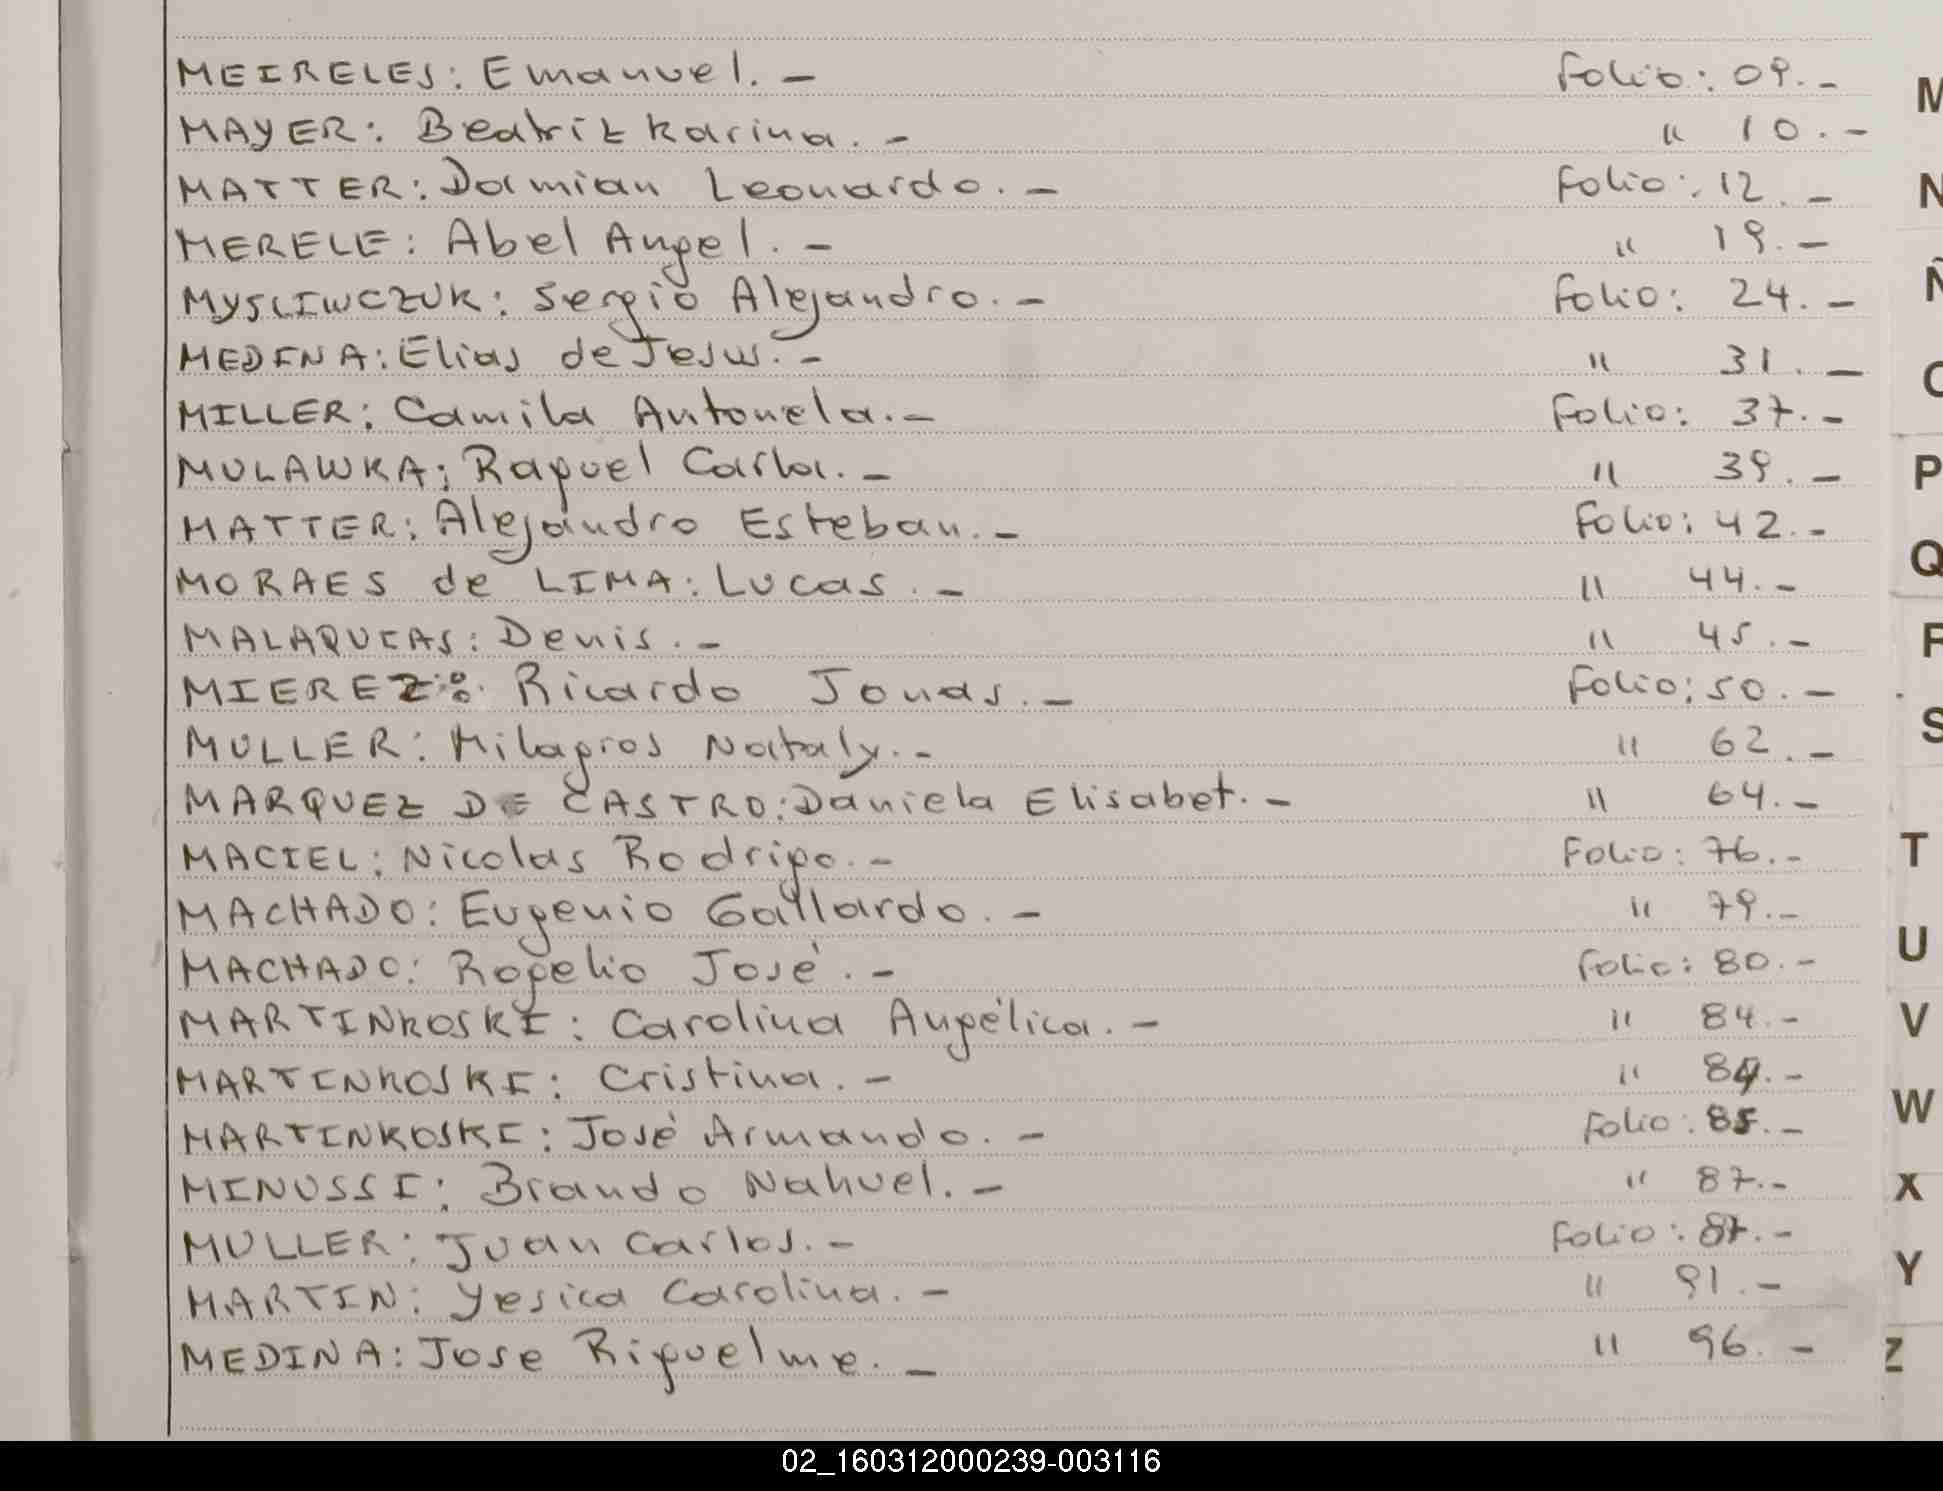 MEIRELES: Emanuel. - Folio: 09. -
MAYER: Beatriz Karina. - " 10. -
MATTER: Damian Leonardo. - Folio: 12. -
MERELE: Abel Angel. - " 19. -
MYSLIWCZUK: Sergio Alejandro. - Folio: 24. -
MEDINA: Elias de Jesus. - " 31. -
MILLER: Camila Antonela. - Folio: 37. -
MULAWKA: Raquel Carla. - " 39. -
MATTER: Alejandro Esteban. - Folio: 42. -
MORAES de LIMA: Lucas. - " 44. -
MALAQUIAS: Denis. - " 45. -
MIEREZ: Ricardo Jonas. - Folio: 50. -
MULLER: Milagros Nataly. - " 62. -
MARQUEZ DE CASTRO: Daniela Elisabet. - " 64. -
MACIEL: Nicolas Rodrigo. - Folio: 76. -
MACHADO: Eugenio Gallardo. - " 79. -
MACHADO: Rogelio José. - Folio: 80. -
MARTINKOSKI: Carolina Angélica. - " 84. -
MARTINKOSKI: Cristina. - " 84. -
MARTINKOSKI: José Armando. - Folio: 85. -
MINUSSI: Brando Nahuel. - " 87. -
MULLER: Juan Carlos. - Folio: 87. -
MARTIN: Yesica Carolina. - " 91. -
MEDINA: Jose Riquelme. - " 96. -
M
N
Ñ
O
P
Q
R
S
T
U
V
W
X
Y
Z
02_160312000239-003116